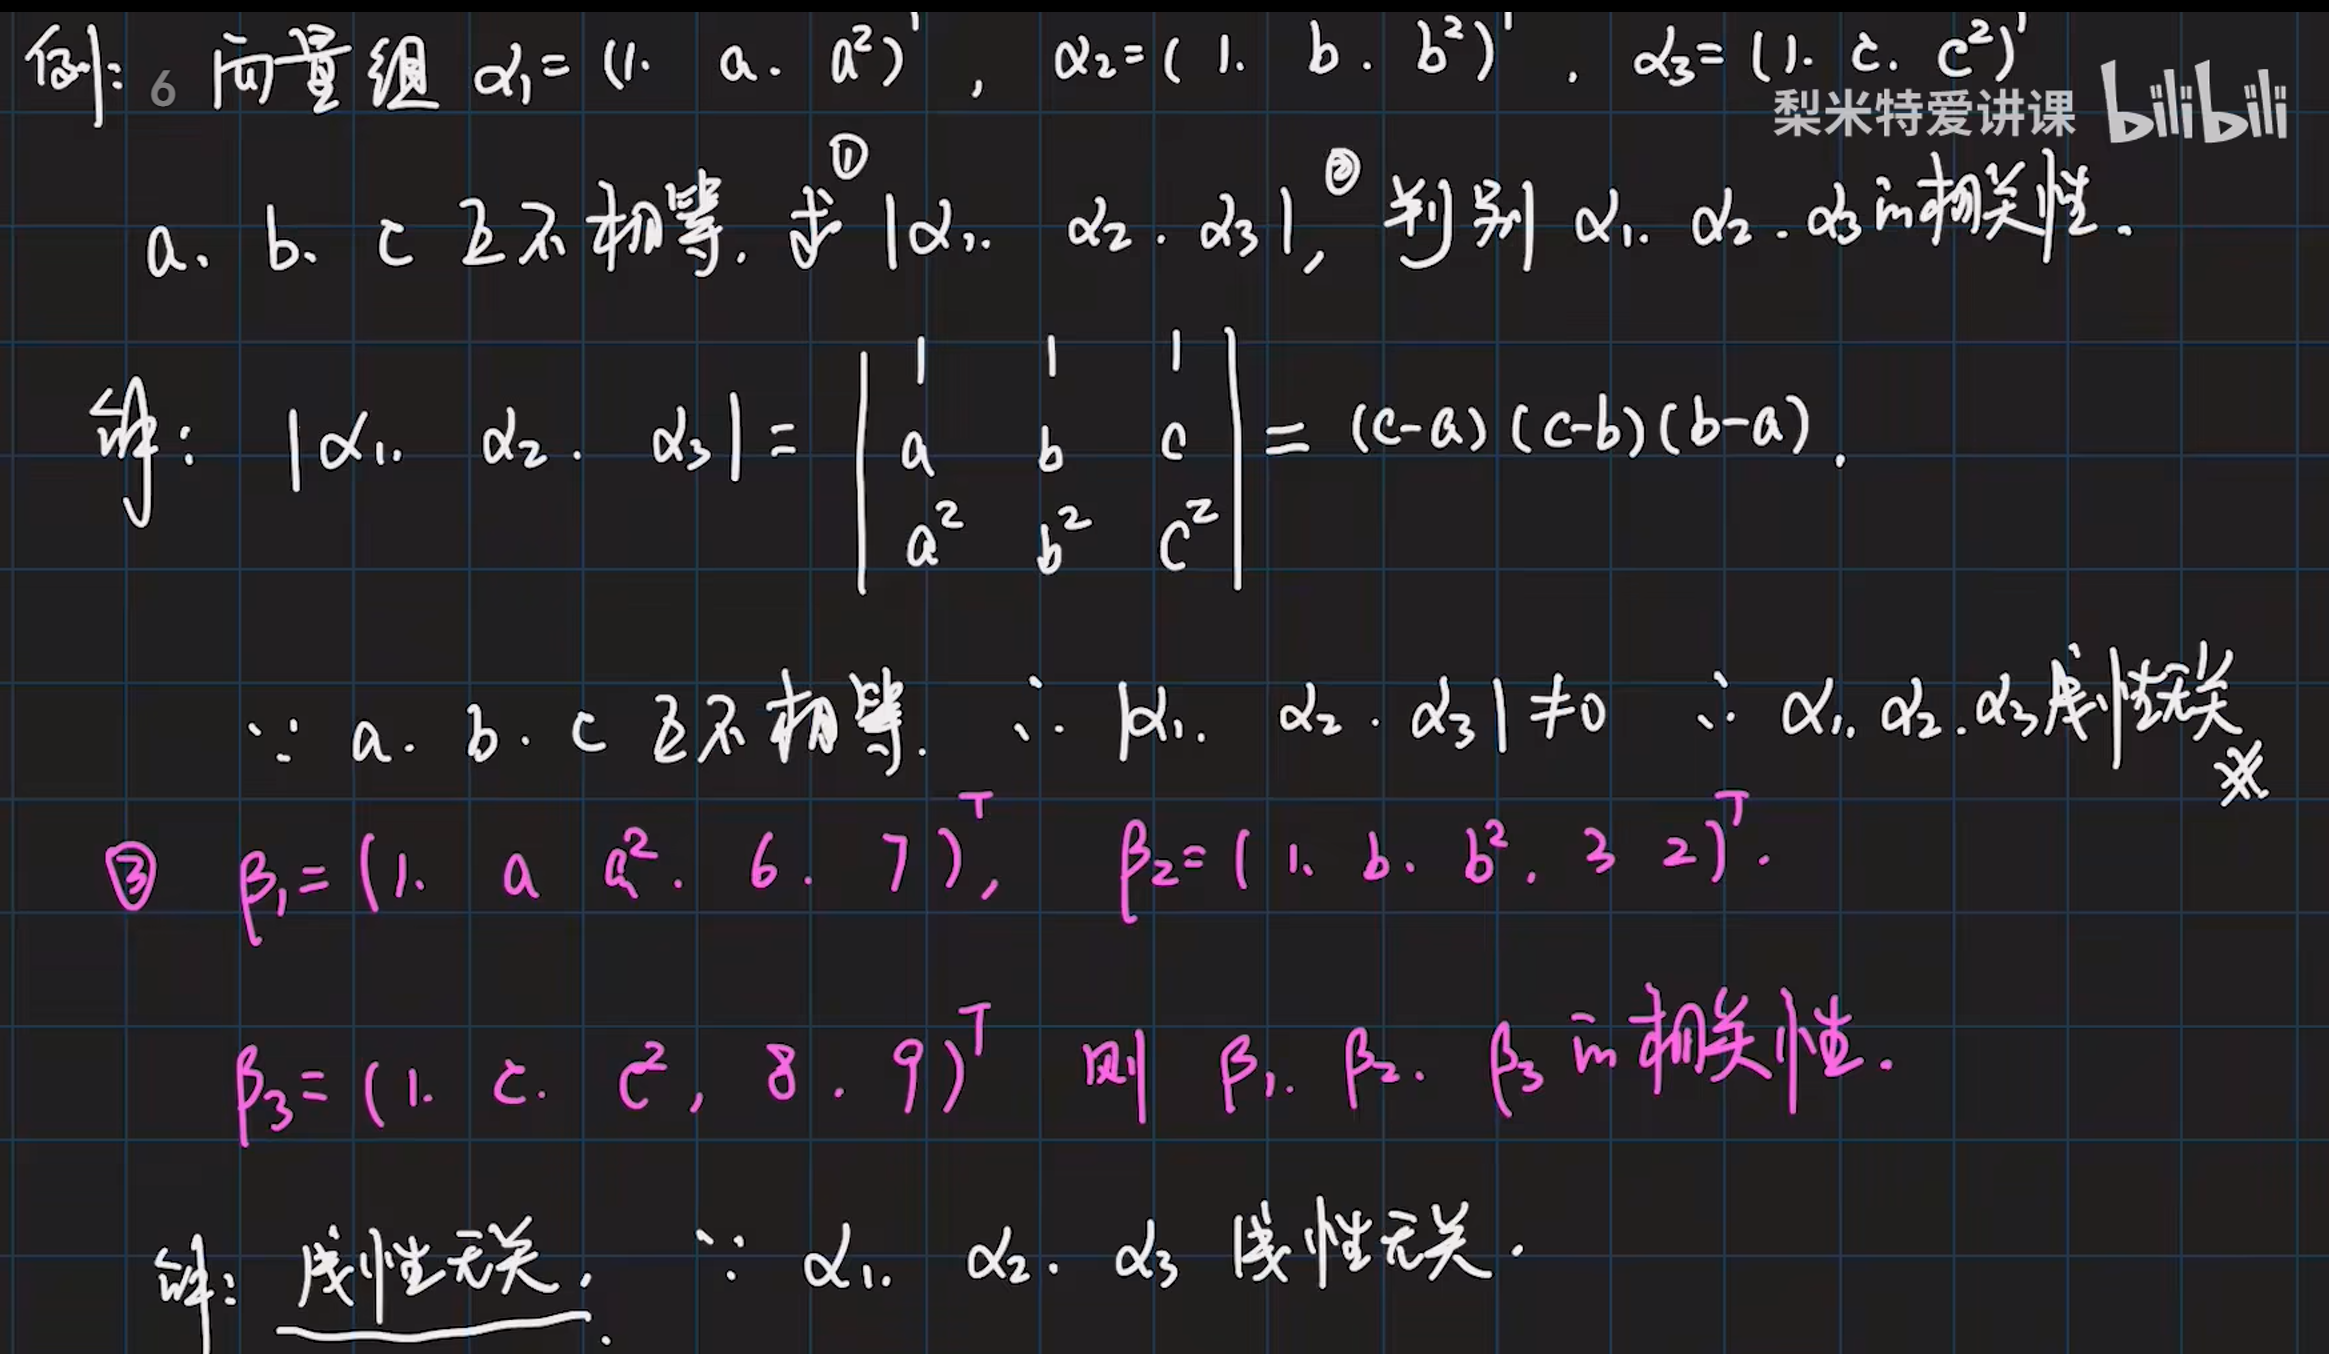 例: 6 向量组 α₁=(1. a. a²)', α₂=(1. b. b²)'. α₃=(1. c. c²)'
梨米特爱讲课 bilibili
a、b、c 互不相等. 求①|α₁. α₂. α₃|, ②判别 α₁. α₂. α₃的相关性.
解: |α₁. α₂. α₃| = | 1 1 1 | = (c-a)(c-b)(b-a).
| a b c |
| a² b² c² |
∵ a. b. c 互不相等. ∴ |α₁. α₂. α₃|≠0 ∴ α₁. α₂. α₃线性无关
※
③ β₁=(1. a a². 6. 7)ᵀ, β₂=(1. b. b². 3 2)ᵀ.
β₃=(1. c. c², 8. 9)ᵀ 则 β₁. β₂. β₃的相关性.
解: 线性无关. ∵ α₁. α₂. α₃ 线性无关.